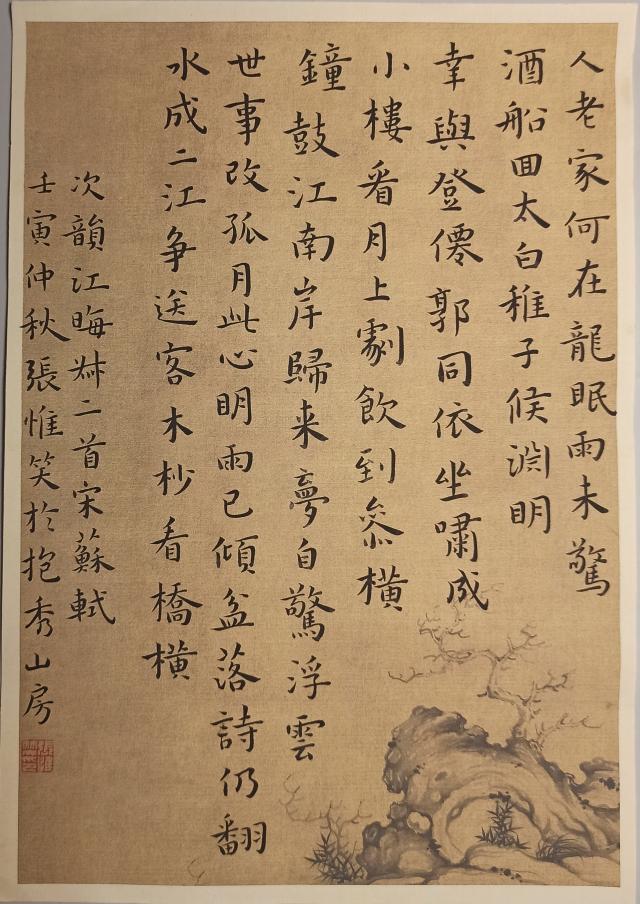 人老家何在龍眠雨未驚
酒船回太白稚子候淵明
幸與登僊郭同依坐嘯成
小樓看月上劇飲到參橫
鐘鼓江南岸歸来夢自驚浮雲
世事改孤月此心明雨已傾盆落詩仍翻
水成二江争送客木杪看橋橫
次韻江晦叔二首宋蘇軾
壬寅仲秋張惟笑於抱秀山房